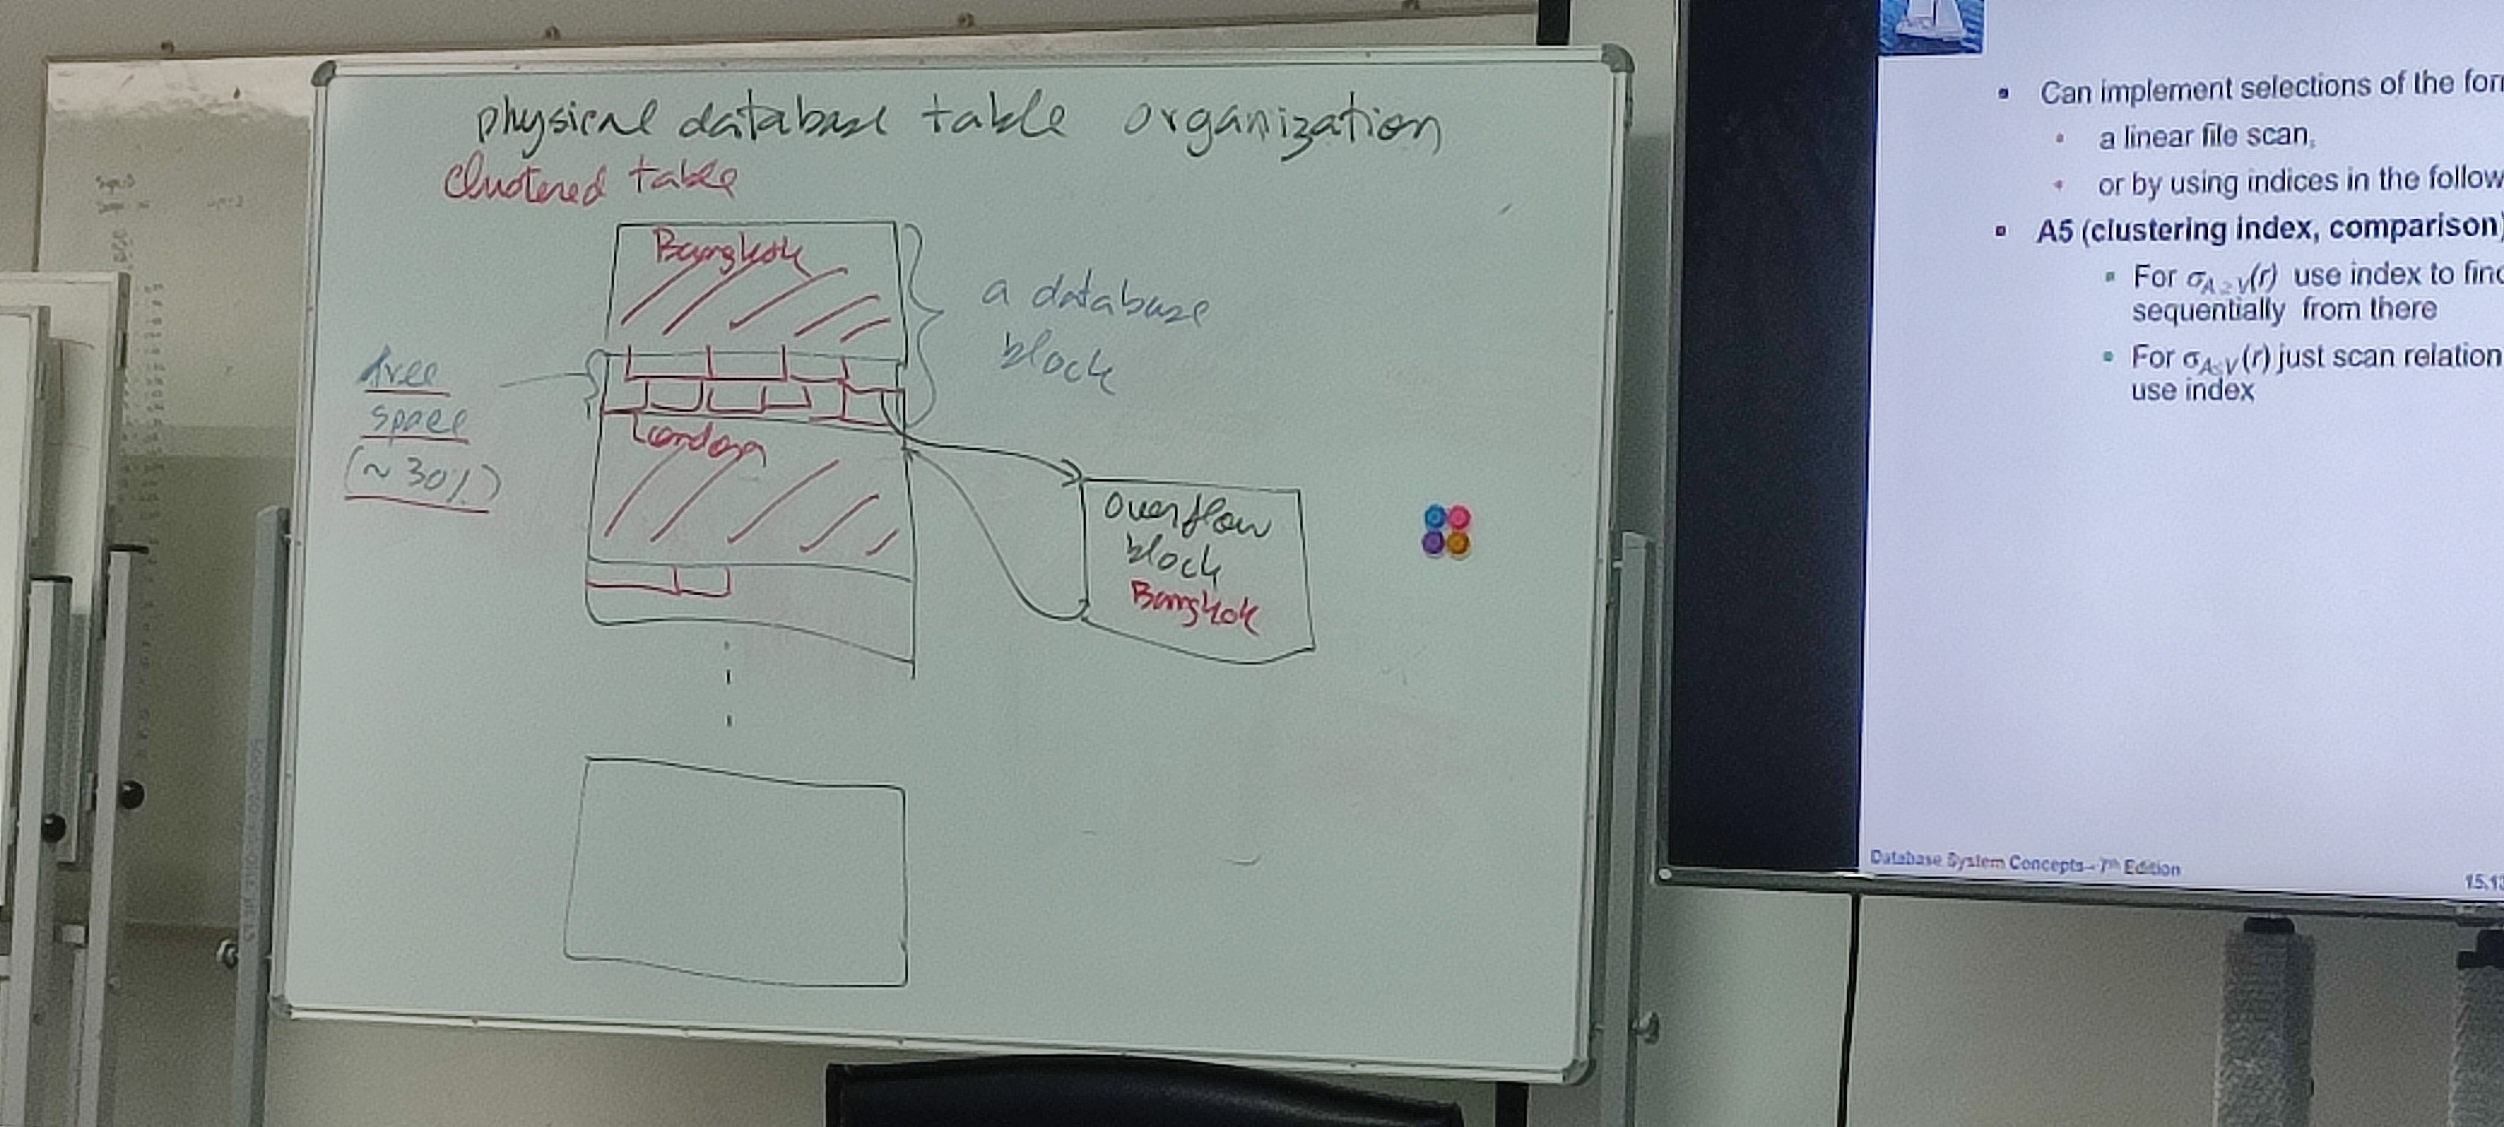 physical database table organization
Clustered table
Bangkok
a database
block
free
space
(~30%)
London
Overflow
block
Bangkok
Can implement selections of the
a linear file scan,
or by using indices in the
A5 (clustering index, comparison)
For σA ≥ V(r) use index to
sequentially from there
For σA≤V(r) just scan relation
use index
Database System Concepts - 7th Edition